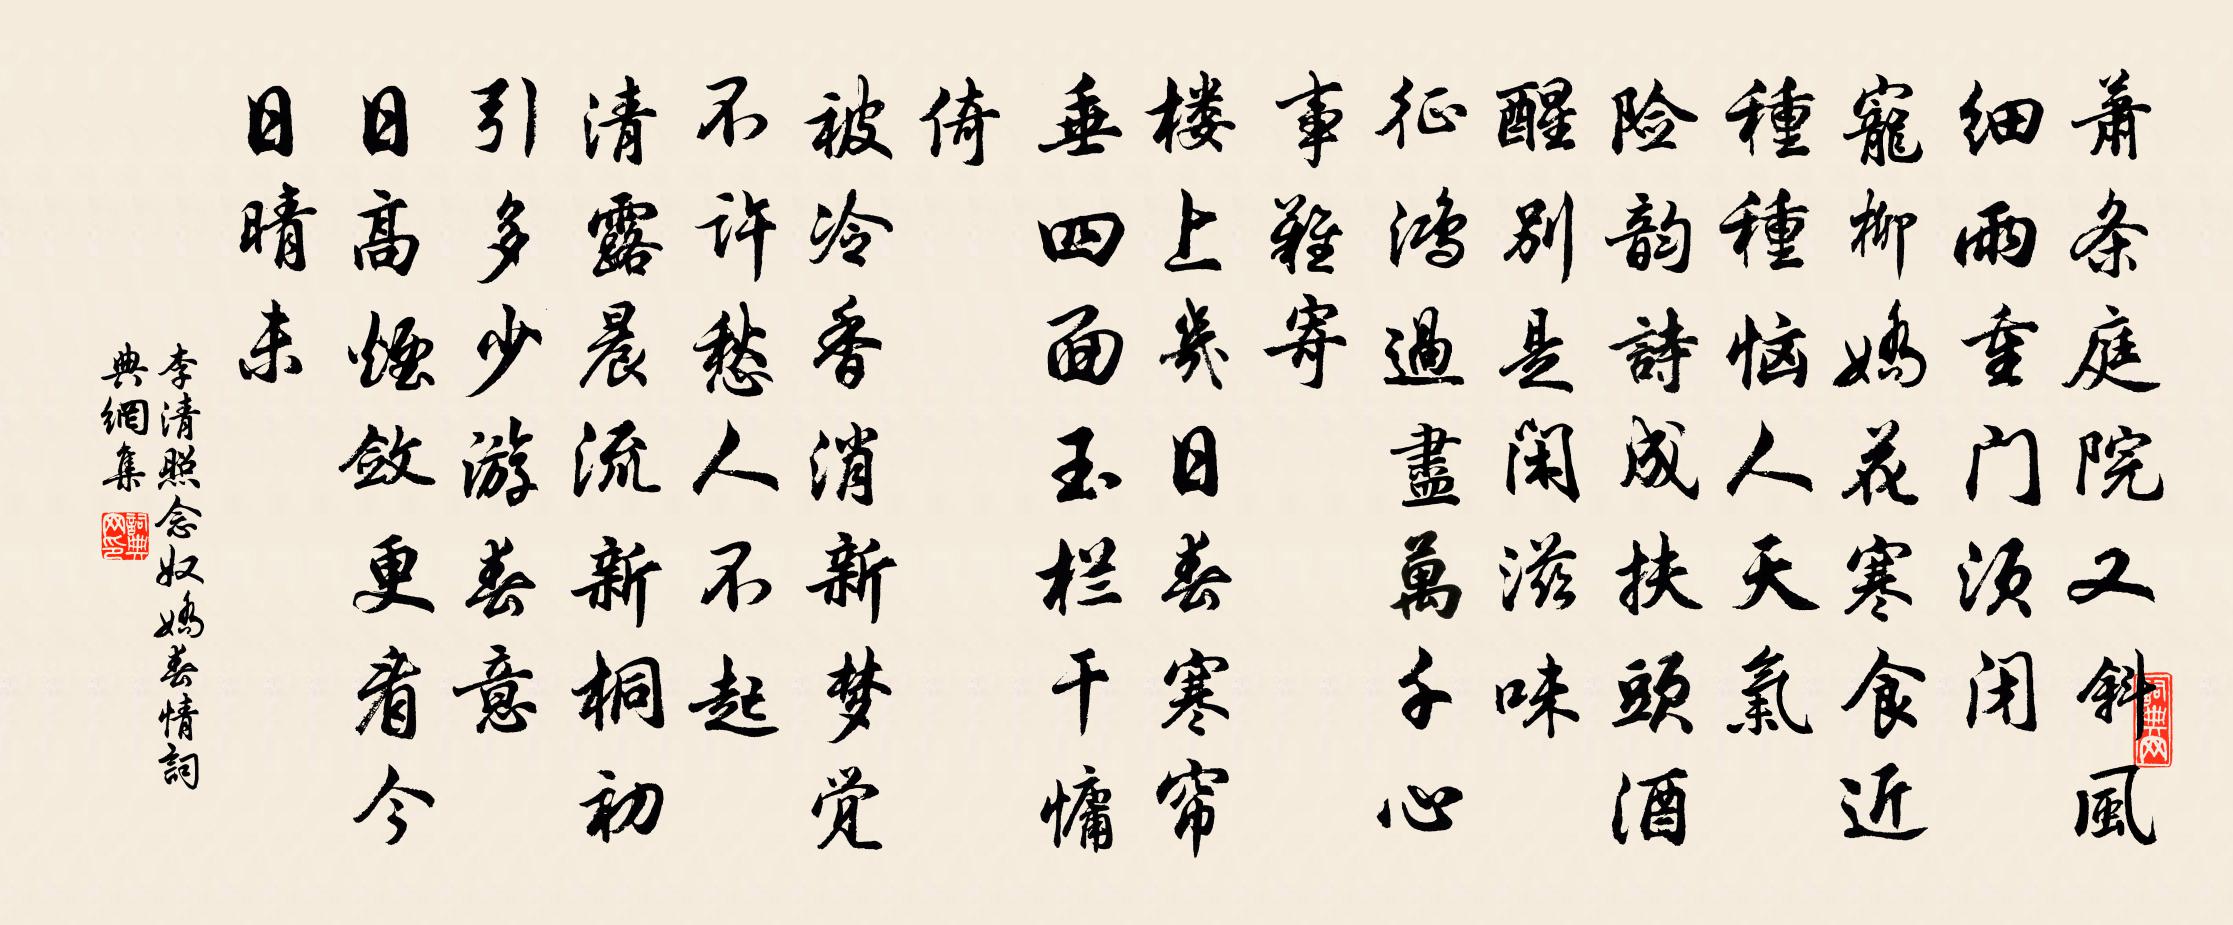 萧条庭院又斜風
细雨重门须闭
寵柳嬌花寒食近
種種恼人天氣
险韵詩成扶頭酒
醒别是闲滋味
征鸿過盡萬千心
事難寄
楼上幾日春寒帘
垂四面玉栏干慵
倚
被冷香消新梦觉
不许愁人不起
清露晨流新桐初
引多少游春意
日高煙敛更看今
日晴未
李清照念奴嬌春情詞
典網集
詞典网
詞典网印